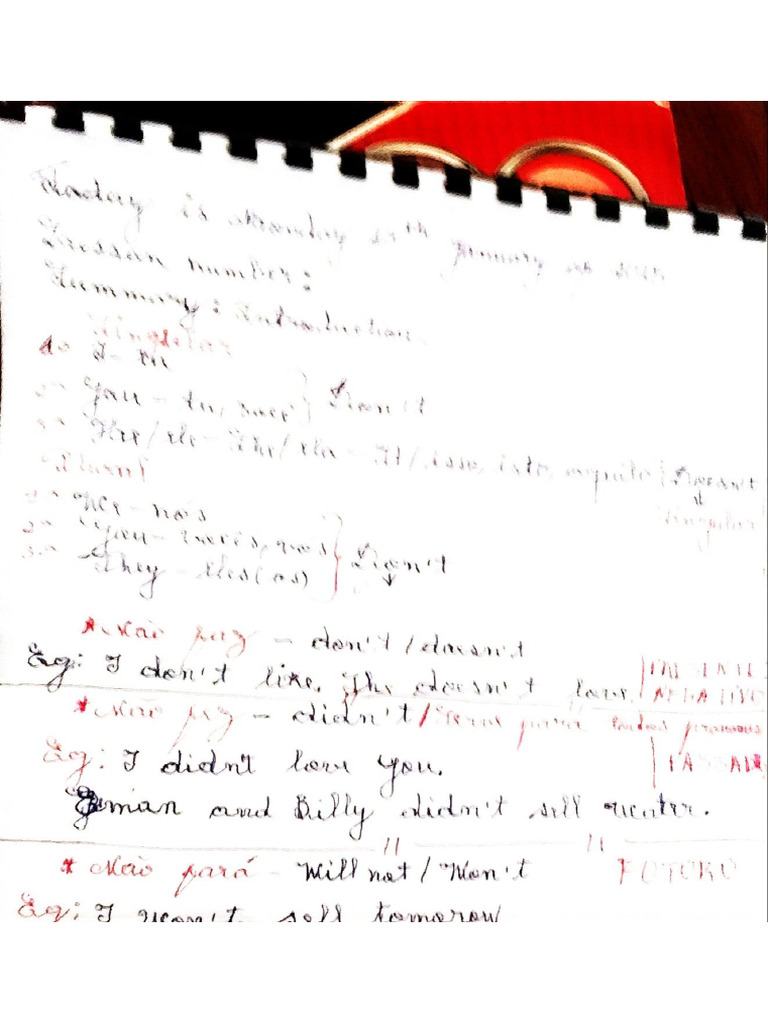 Today is Monday th January
Lesson number:
Summary: Introduction.
Singular
1ª I - eu
2ª You - tu, você } Don't
3ª He/ele - She/ela - It/isso, isto, aquilo { Doesn't
Singular
Plural
1ª We - nós
2ª You - vocês, vós } Don't
3ª They - eles(as)
* Não faz - don't / doesn't
Eg: I don't like. She doesn't love. | PRESENTE
NEGATIVO
* Não fez - didn't / Serve para todos pronomes
Eg: I didn't love you. | PASSADO
and Billy didn't sell water.
// //
* Não fará - Will not / Won't FUTURO
Eg: I won't sell tomorow